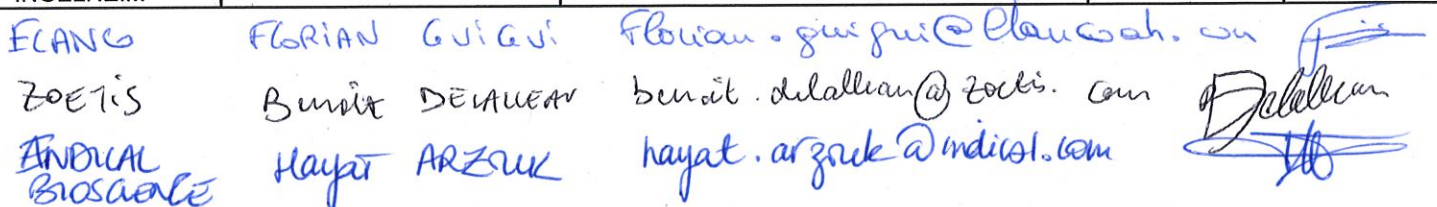 ELANCO FLORIAN GUIGUI florian.guigui@elancoah.com
ZOETIS Benoit DELALLEAU benoit.delalleau@zoetis.com Delalleau
INDICAL BIOSCIENCE Hayat ARZOUK hayat.arzouk@indical.com